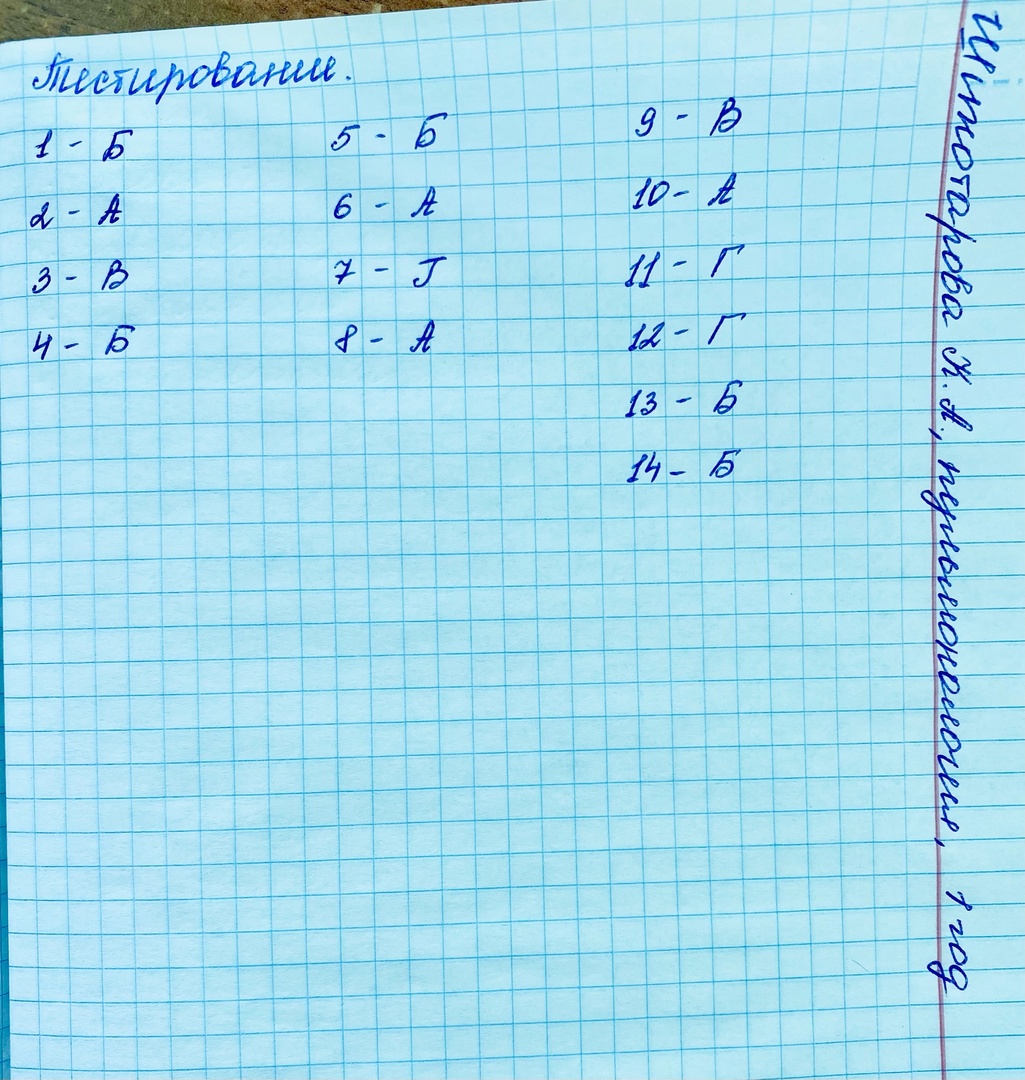 Тестирование.
1 - Б
2 - А
3 - В
4 - Б
5 - Б
6 - А
7 - Г
8 - А
9 - В
10 - А
11 - Г
12 - Г
13 - Б
14 - Б
К.А., пульмонология, 1 год